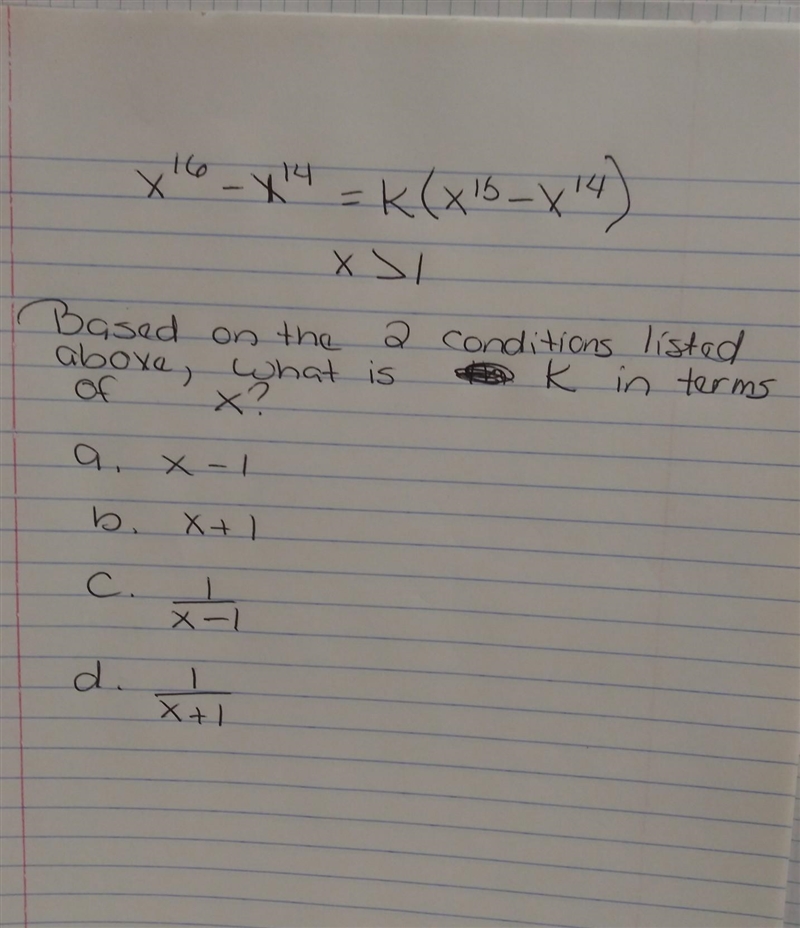 x¹⁶ - x¹⁴ = K(x¹⁵ - x¹⁴)
x > 1
Based on the 2 conditions listed
above, what is K in terms
of x?
a. x - 1
b. x + 1
c. 1/(x - 1)
d. 1/(x + 1)